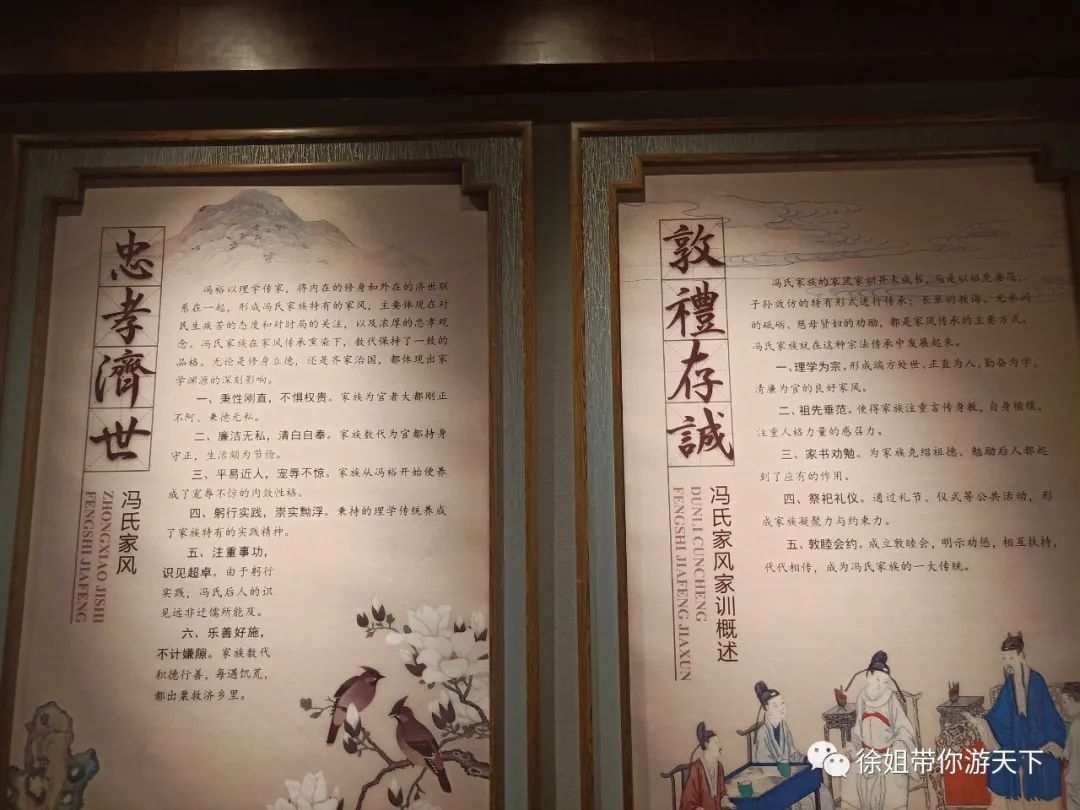 忠孝濟世
冯氏家风
ZHONGXIAO JISHI
FENGSHI JIAFENG
冯裕以理学传家，将内在的修身和外在的济世联
系在一起，形成冯氏家族特有的家风，主要体现在对
民生疾苦的态度和对时局的关注，以及浓厚的忠孝观
念。冯氏家族在家风传承熏染下，数代保持了一致的
品格。无论是修身立德，还是齐家治国，都体现出家
学渊源的深刻影响。
一、秉性刚直，不惧权贵。家族为官者大都刚正
不阿、秉德无私。
二、廉洁无私，清白自奉。家族数代为官都持身
守正，生活颇为节俭。
三、平易近人，宠辱不惊。家族从冯裕开始便养
成了宠辱不惊的内敛性格。
四、躬行实践，崇实黜浮。秉持的理学传统养成
了家族特有的实践精神。
五、注重事功，
识见超卓。由于躬行
实践，冯氏后人的识
见远非迂儒所能及。
六、乐善好施，
不计嫌隙。家族数代
积德行善，每遇饥荒，
都出粟救济乡里。
敦禮存誠
冯氏家风家训概述
DUNLI CUNCHENG
FENGSHI JIAFENG JIAXUN
冯氏家族的家风家训并未成书，而是以祖先垂范、
子孙效仿的特有形式进行传承；长辈的教诲、兄弟间
的砥砺、慈母贤妇的劝励，都是家风传承的主要方式，
冯氏家族就在这种宗法传承中发展起来。
一、理学为宗。形成端方处世、正直为人，勤奋为学，
清廉为官的良好家风。
二、祖先垂范。使得家族注重言传身教，自身楷模，
注重人格力量的感召力。
三、家书劝勉。为家族克绍祖德、勉励后人都起
到了应有的作用。
四、祭祀礼仪。通过礼节、仪式等公共活动，形
成家族凝聚力与约束力。
五、敦睦会约。成立敦睦会，明示劝惩，相互扶持，
代代相传，成为冯氏家族的一大传统。
徐姐带你游天下